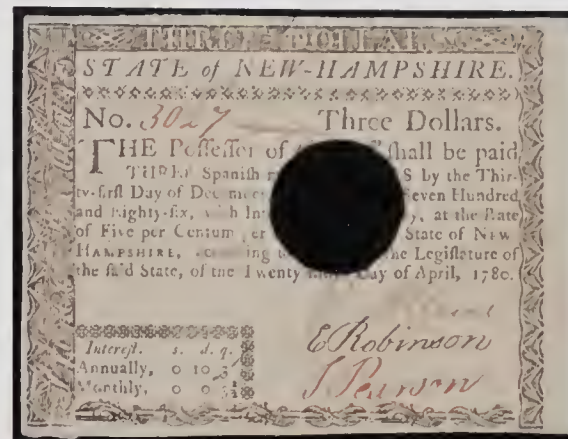 THREE DOLLARS
STATE of NEW-HAMPSHIRE.
No. 3027 Three Dollars.
THE Poſſeſſor of ſhall be paid
THREE Spaniſh S by the Thir-
ty-firſt Day of even Hundred
and Eighty-ſix, with In y, at the Rate
of Five per Centum er State of NEW
HAMPSHIRE, ing to he Legiſlature of
the ſaid State, of the Twenty Day of April, 1780.
E Robinson
Intereſt. s. d. q.
Annually, 0 10 3
J Pearson
Monthly, 0 0